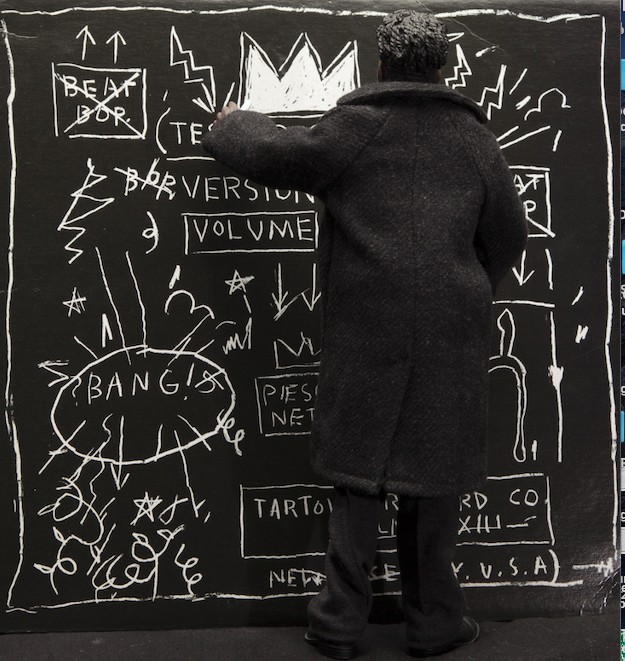 BEAT
BOP
(TES
BOP VERSION
VOLUME
AT
P
?BANG!
PIES
NET
TARTO RD CO.
XIII
NEW Y. U.S.A)